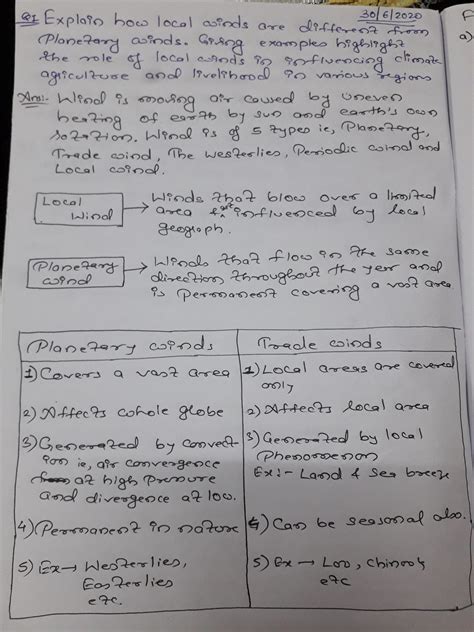 30/6/2020
Q1 Explain how local winds are different from
Planetary winds. Giving examples highlight
the role of local winds in influencing climate
agriculture and livelihood in various regions
Ans:- Wind is moving air caused by uneven
heating of earth by sun and earth's own
rotation. Wind is of 5 types ie, Planetary,
Trade wind, The Westerlies, Periodic wind and
Local wind.
Local Wind → Winds that blow over a limited
area & influenced by local
geograph.
Planetary wind → Winds that flow in the same
direction throughout the year and
is Permanent covering a vast area
Planetary winds
1) Covers a vast area
2) Affects whole globe
3) Generated by convect-
ion ie, air convergence
at high Pressure
and divergence at low.
4) Permanent in nature
5) Ex → Westerlies,
Easterlies
etc.
Trade winds
1) Local areas are covered
only
2) Affects local area
3) Generated by local
Phenomenon
Ex:- Land & Sea breeze
4) Can be seasonal also.
5) Ex → Loo, Chinook
etc
a)